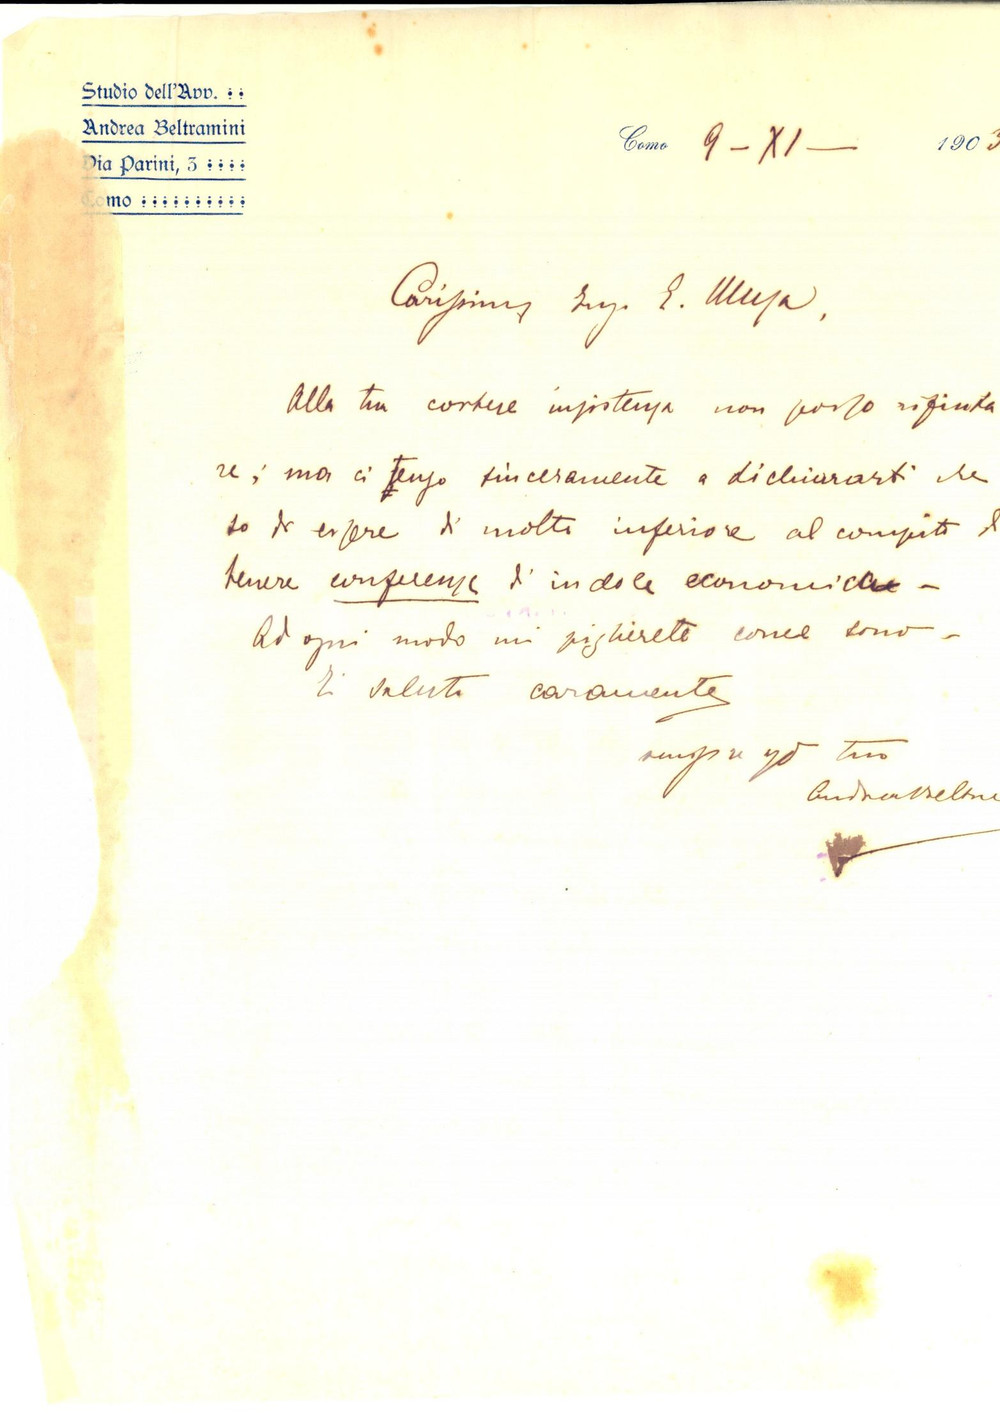 Studio dell'Avv.
Andrea Beltramini
Via Parini, 3
Como
Como 9 - XI - 1903
Carissimo Ing. E. Musa,
Alla tua cortese insistenza non posso rifiuta
re; ma ci tengo sinceramente a dichiararti che
so di essere di molto inferiore al compito di
tenere conferenze d'indole economiche -
Ad ogni modo mi piglierete come sono -
Ti saluto caramente
sempre tuo
Andrea Beltra